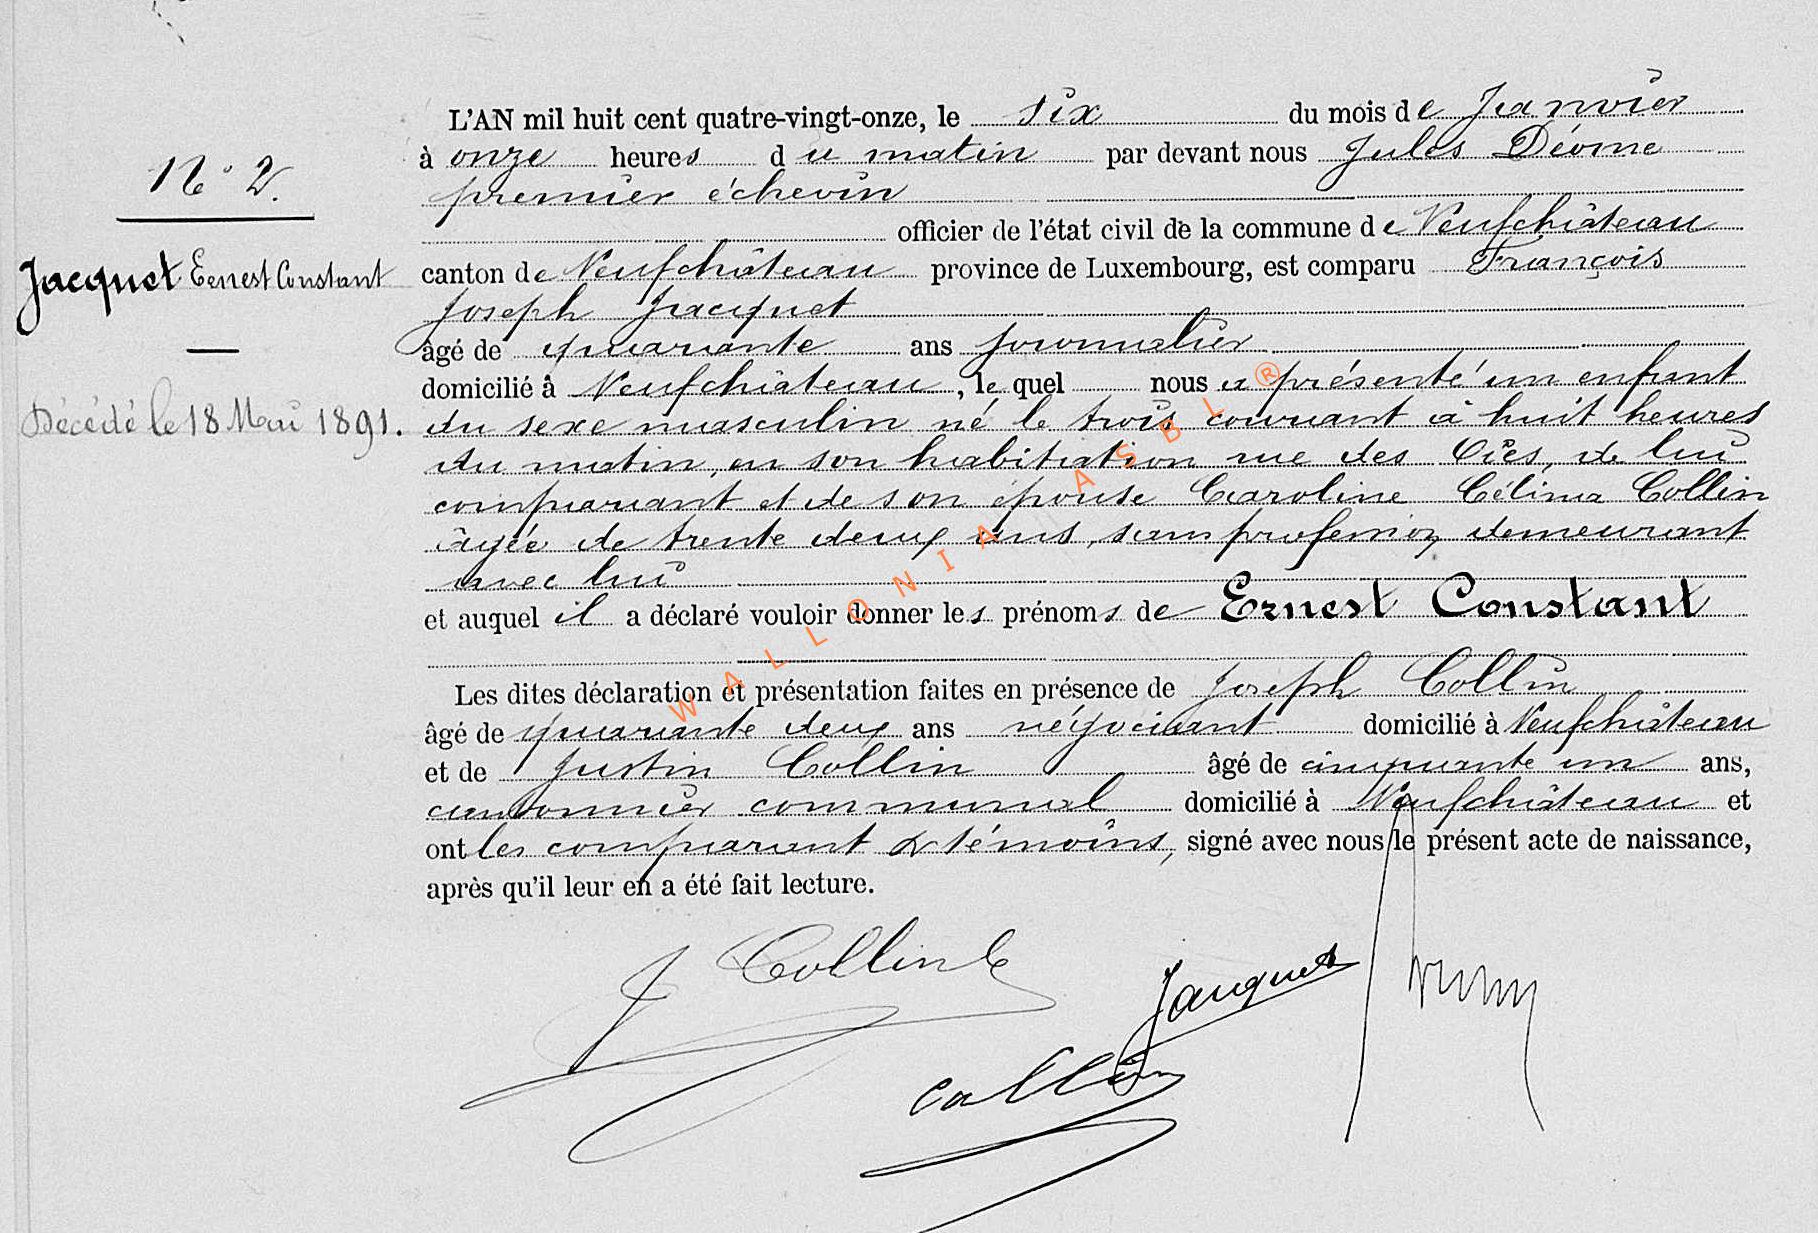 L'AN mil huit cent quatre-vingt-onze, le six du mois de Janvier
à onze heures du matin par devant nous Jules Déome
N° 2.
premier échevin
officier de l'état civil de la commune de Neufchâteau
Jacquet Ernest Constant
canton de Neufchâteau province de Luxembourg, est comparu François
Joseph Jacquet
âgé de quarante ans journalier
domicilié à Neufchâteau, le quel nous a présenté un enfant
Décédé le 18 Mai 1891.
du sexe masculin né le trois courant à huit heures
du matin, en son habitation rue des Oies, de lui
comparant et de son épouse Caroline Célina Collin
âgée de trente deux ans, sans profession demeurant
avec lui
et auquel il a déclaré vouloir donner les prénoms de Ernest Constant
Les dites déclaration et présentation faites en présence de Joseph Collin
âgé de quarante deux ans négociant domicilié à Neufchâteau
et de Justin Collin âgé de cinquante un ans,
cantonnier communal domicilié à Neufchâteau et
ont les comparant & témoins, signé avec nous le présent acte de naissance,
après qu'il leur en a été fait lecture.
J Collin
Jacquet
Collin
WALLONIA ASBL ®